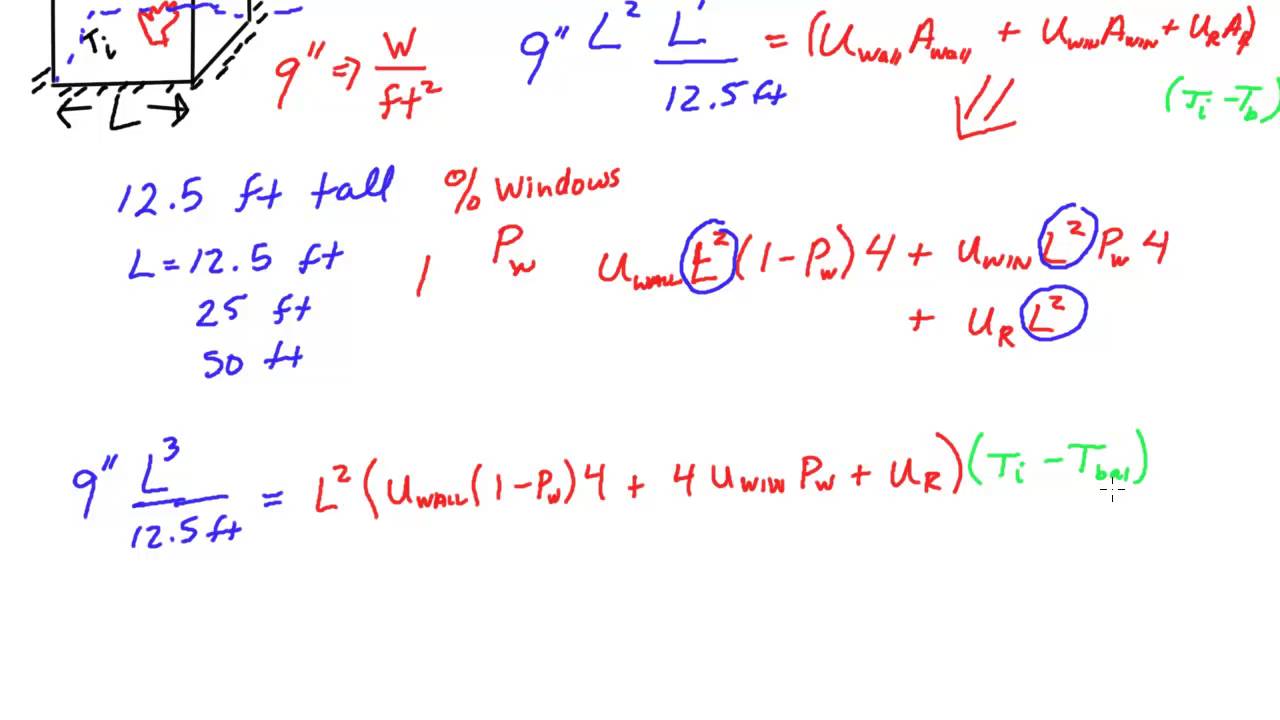 Ti
L
9" ⇒ W/ft²
9" L² L¹/12.5 ft = (U_wall A_wall + U_WIN A_WIN + U_R A_R)
(Ti - T_b)
12.5 ft tall
% Windows
L = 12.5 ft
25 ft
50 ft
1
P_w
U_WALL L² (1 - P_w) 4 + U_WIN L² P_w 4
+ U_R L²
9" L³/12.5 ft = L² (U_WALL (1 - P_w) 4 + 4 U_WIN P_w + U_R) (Ti - T_bal)